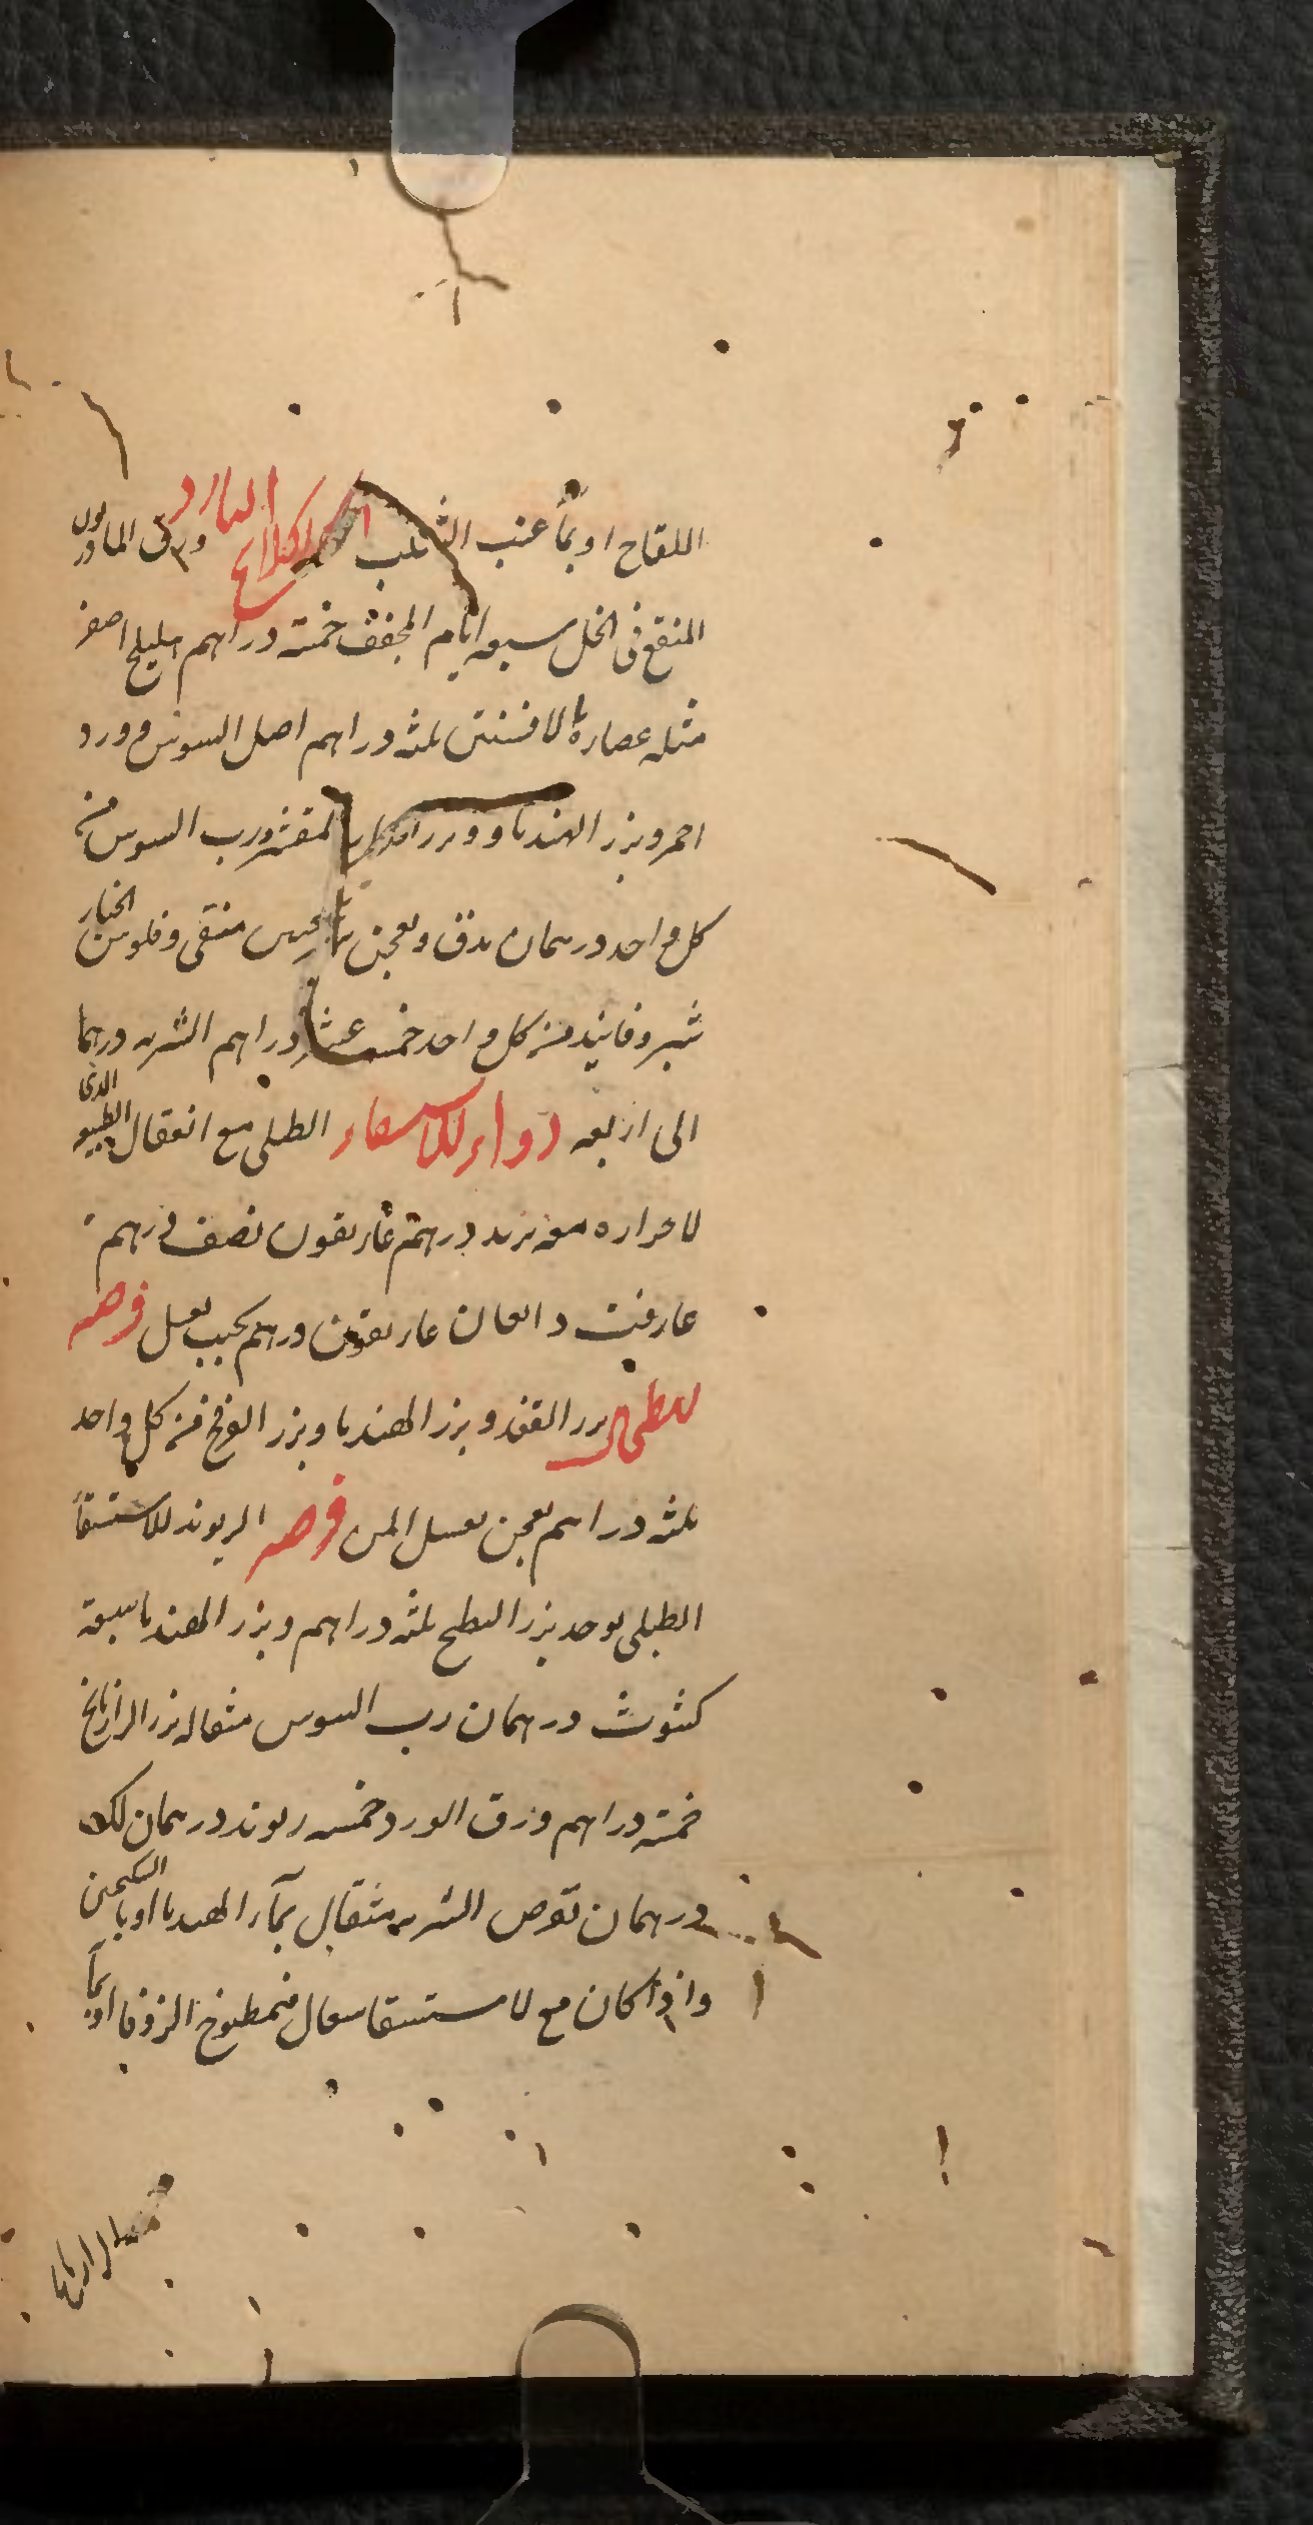 اللقاح او بمأ عنب الثعلب الكلكلانج البارد ورق الماذريون
المنقع فى الخل سبعه ايام المجفف خمسة دراهم هليلج اصفر
مثله عصارة الافسنتين ثلثه دراهم اصل السوس وورد
احمر وبزر الهندبا وبزر المقشر ورب السوس من
كل واحد درهمان يدق ويعجن منقى وفلوس الخيار
شنبر وفانيذ من كل واحد خمسه عشر دراهم الشربه درهما
الى اربعه دواء للاستسقاء الطبلى مع اعتقال الطبيعه الذى
لا حراره معه تربد درهم غاريقون نصف درهم
غاريقون درهم يحبب بعسل قرصه
للطحال بزر القثد وبزر الهندبا وبزر الفرفخ من كل واحد
ثلثه دراهم يعجن بعسل اللبن قرصه الريوند للاستسقأ
الطبلى يوخد بزر البطيخ ثلثه دراهم وبزر الهندبا سبعة
كشوث درهمان رب السوس مثقاله بزر الرازيانج
خمسة دراهم ورق الورد خمسه ريوند درهمان لك
درهمان تقرص الشربه مثقال بمآء الهندبا او بالسكنجبين
واذا كان مع الاستسقا سعال فمطبوخ الزوفا او بمأ